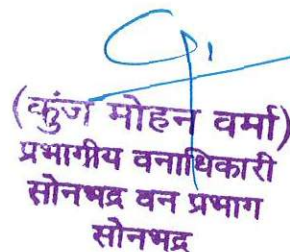 (कुंज मोहन वर्मा)
प्रभागीय वनाधिकारी
सोनभद्र वन प्रभाग
सोनभद्र